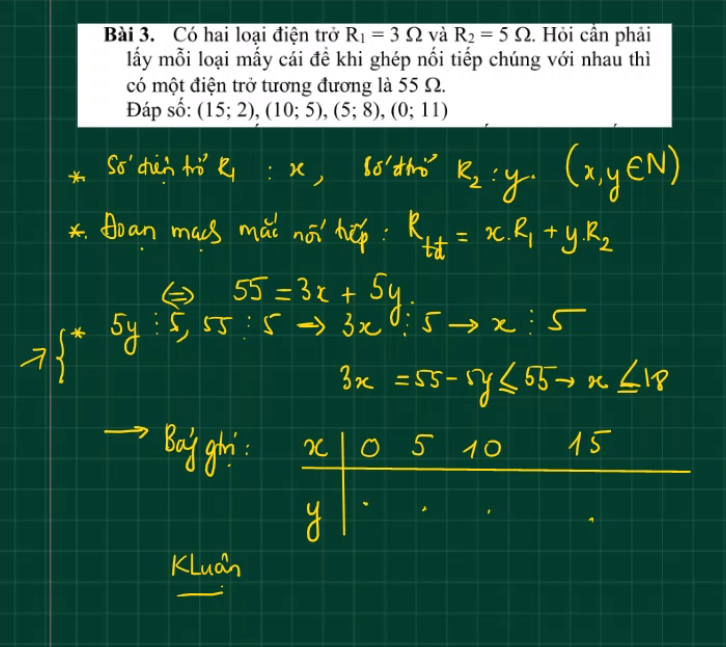 Bài 3. Có hai loại điện trở R₁ = 3 Ω và R₂ = 5 Ω. Hỏi cần phải
lấy mỗi loại mấy cái để khi ghép nối tiếp chúng với nhau thì
có một điện trở tương đương là 55 Ω.
Đáp số: (15; 2), (10; 5), (5; 8), (0; 11)
* Số điện trở R₁ : x, số đtrở R₂ : y. (x, y ∈ N)
*. Đoạn mạch mắc nối tiếp : R_tđ = x.R₁ + y.R₂
⇔ 55 = 3x + 5y.
* 5y ⋮ 5, 55 ⋮ 5 → 3x ⋮ 5 → x ⋮ 5
3x = 55 - 5y ≤ 55 → x ≤ 18
→ Bảng gtrị : x | 0 5 10 15
y | . . . .
KLuận